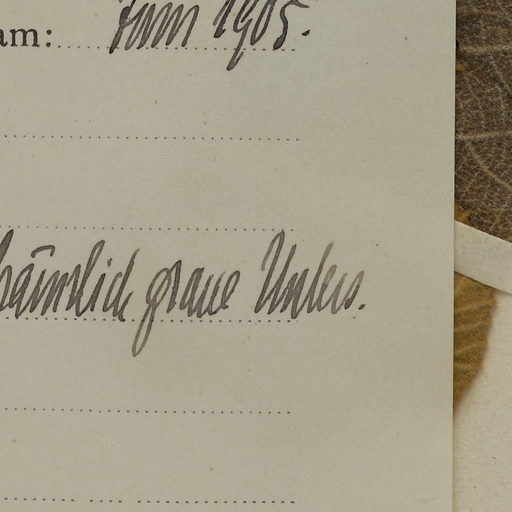 am: Juni 1905.
bräunlich graue Unters.